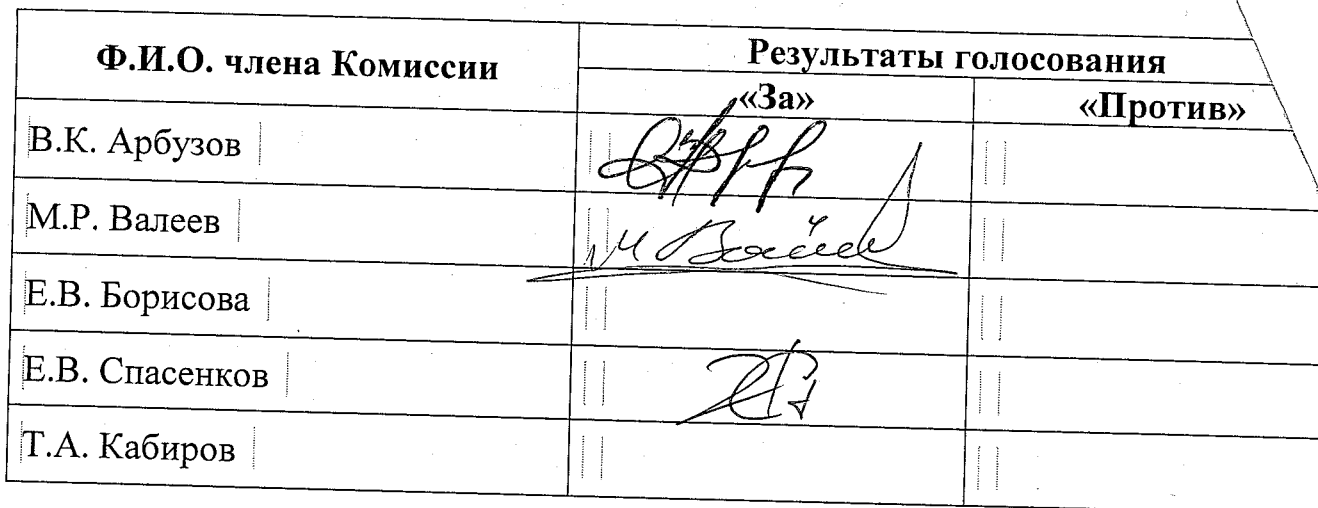 Ф.И.О. члена Комиссии
Результаты голосования
«За»
«Против»
В.К. Арбузов
М.Р. Валеев
Е.В. Борисова
Е.В. Спасенков
Т.А. Кабиров